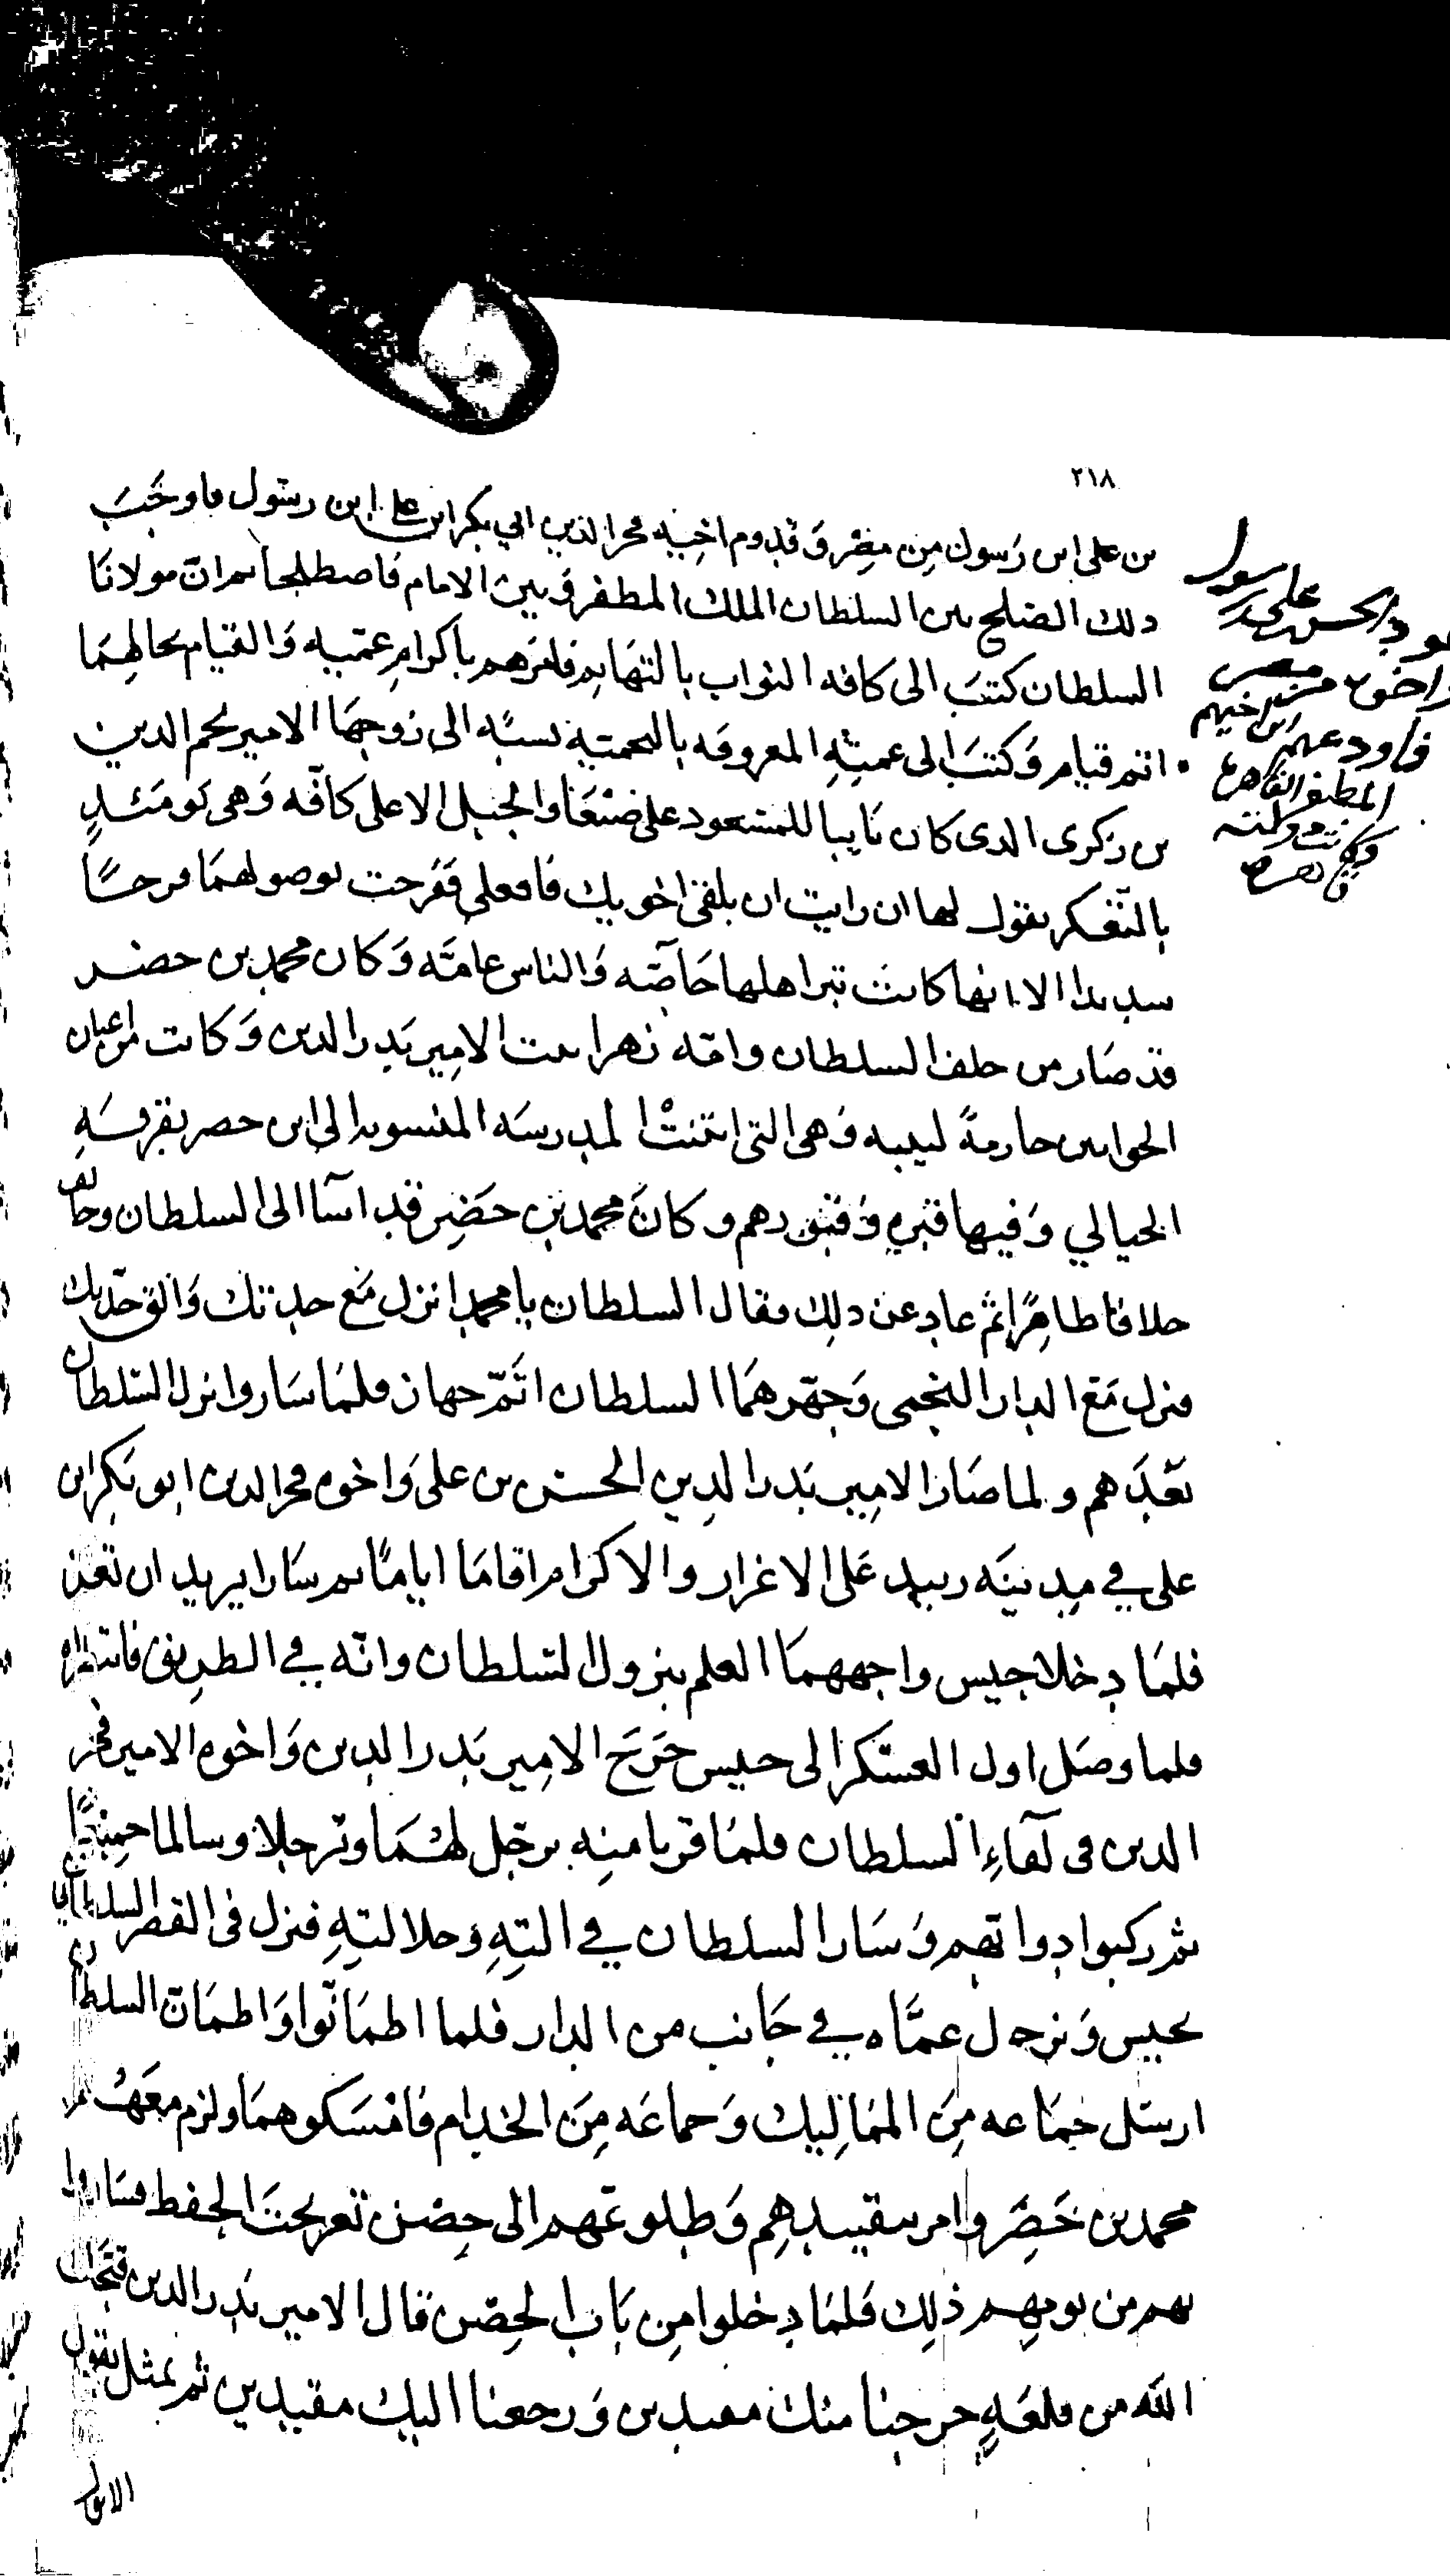 ٢١٨
بن على ابن رسول من مصر وقدوم اخيه فخر الدين ابي بكر ابن على ابن رسول فاوجب
ذلك الصلح بين السلطان الملك المظفر وبين الامام فاصطلحا ثم ان مولانا
السلطان كتب الى كافه النواب بالتهايم فامرهم باكرام عميه والقيام بحالهما
اتم قيام وكتب الى عميته المعروفه بالنجميه نسبه الى زوجها الامير نجم الدين
بن زكرى الدى كان نايبا للمسعود على صنعا والجبل الاعلى كافه وهى يومئذ
بالتعكر يقول لها ان رايت ان بلقى اخويك فافعلى ففرحت بوصولهما فرحًا
سديدا الا انها كانت تبر اهلها خاصه والناس عامه وكان محمد بن خضر
قد صار من حلف السلطان وامه زهرا بنت الامير بدر الدين وكانت من اعيان
الخواتين حازمة لبيبه وهى التى ابتنت المدرسه المنسوبه الى ابن خضر بقريه
الحيالي وفيها قبره وقبورهم وكان محمد بن خضر قد اسا الى السلطان وخالف
خلافا ظاهرًا ثم عاد عن ذلك فقال السلطان يا محمد انزل مع جدتك والق جديك
فنزل مع الدار النجمى وجهزهما السلطان اتم جهاز فلما ساروا نزل السلطان
بعدهم ولما صار الامير بدر الدين الحسن بن على واخوه فخر الدين ابو بكر ابن
على في مدينه زبيد على الاعزاز والاكرام اقاما ايامًا ثم سارا يريدان تعز
فلما دخلا حيس واجههما العلم بنزول السلطان وانه في الطريق فانتظراه
فلما وصل اول العسكر الى حيس خرج الامير بدر الدين واخوه الامير فخر
الدين فى لقاء السلطان فلما قربا منه ترجل لهما وترجلا وسالما
ثم ركبوا دوابهم وسار السلطان في ابهته وجلالته فنزل فى القصر السلطاني
بحيس ونزل عماه في جانب من الدار فلما اطمانوا واطمان السلطان
ارسل جماعه من المماليك وجماعه من الخدام فامسكوهما ولزم معهم
محمد بن خضر وامر بتقييدهم وطلوعهم الى حصن تعز تحت الحفظ فساروا
بهم من يومهم ذلك فلما دخلوا من باب الحصن قال الامير بدر الدين
الله من قلعه خرجنا منك مقيدين ورجعنا اليك مقيدين ثم تمثل بقول
الاول
الحسن على رسول
من مصر
ابن اخيهم
المظفر القاهره